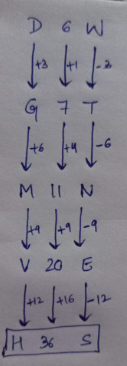 D 6 W
+3 +1 -3
G 7 T
+6 +4 -6
M 11 N
+9 +9 -9
V 20 E
+12 +16 -12
H 36 S